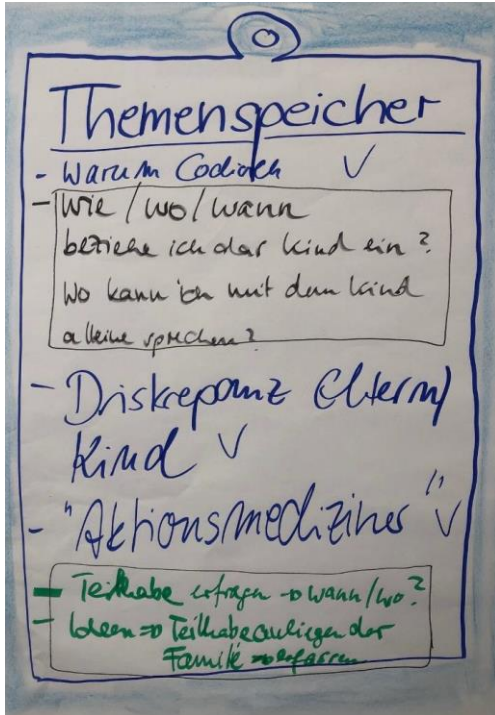 Themenspeicher
- Warum Codieren ✓
- Wie / wo / wann
beziehe ich das Kind ein?
Wo kann ich mit dem Kind
alleine sprechen?
- Diskrepanz Eltern/
Kind ✓
- "Aktionsmediziner" ✓
- Teilhabe erfragen → wann/wo?
- Ideen => Teilhabeanliegen der
Familie → erfassen